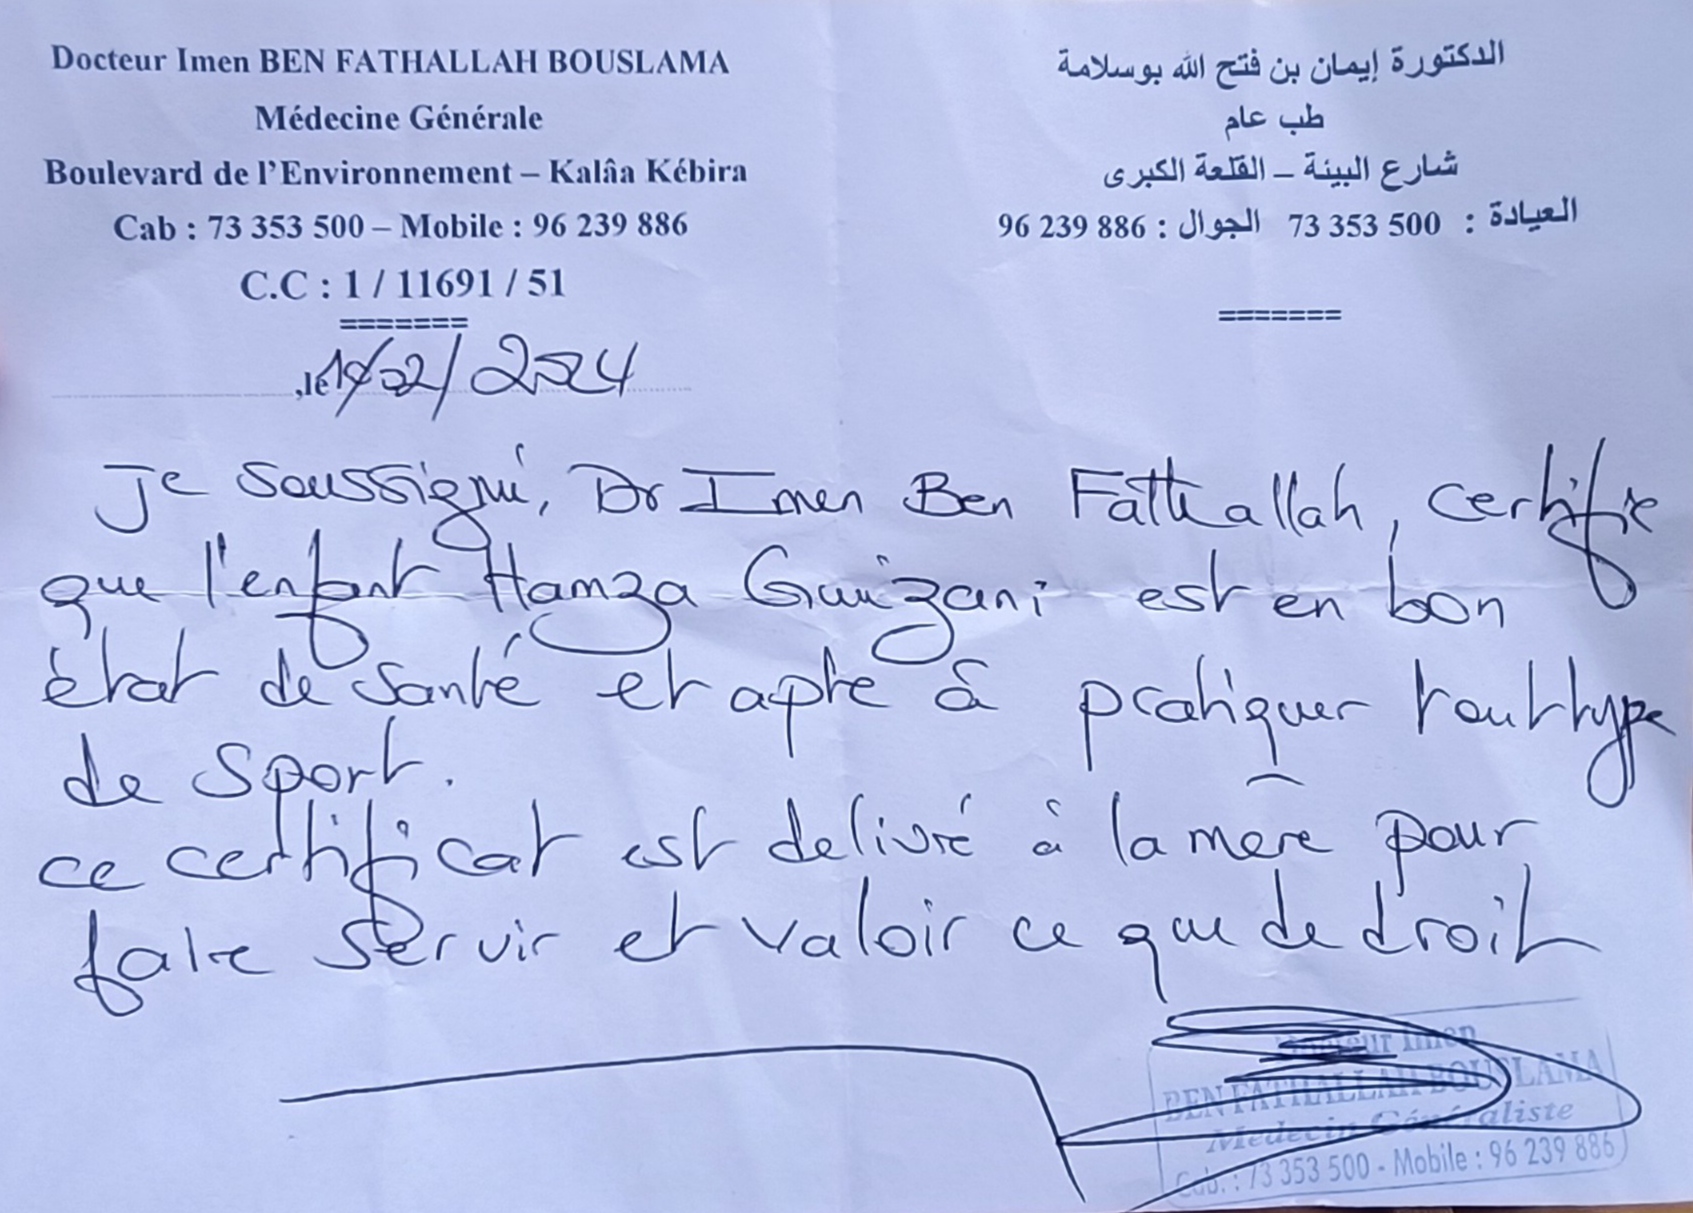 Docteur Imen BEN FATHALLAH BOUSLAMA
Médecine Générale
Boulevard de l'Environnement – Kalâa Kébira
Cab : 73 353 500 – Mobile : 96 239 886
C.C : 1 / 11691 / 51
=======
الدكتورة إيمان بن فتح الله بوسلامة
طب عام
شارع البيئة – القلعة الكبرى
العيادة : 73 353 500 الجوال : 96 239 886
=======
,le /02/2024
Je soussigné, Dr Imen Ben Fathallah, certifie
que l'enfant Hamza Guizani est en bon
état de santé et apte à pratiquer tout type
de sport.
ce certificat est delivré à la mère pour
faire servir et valoir ce que de droit
Docteur Imen
BEN FATHALLAH BOUSLAMA
Medecin Généraliste
Cab. : 73 353 500 - Mobile : 96 239 886